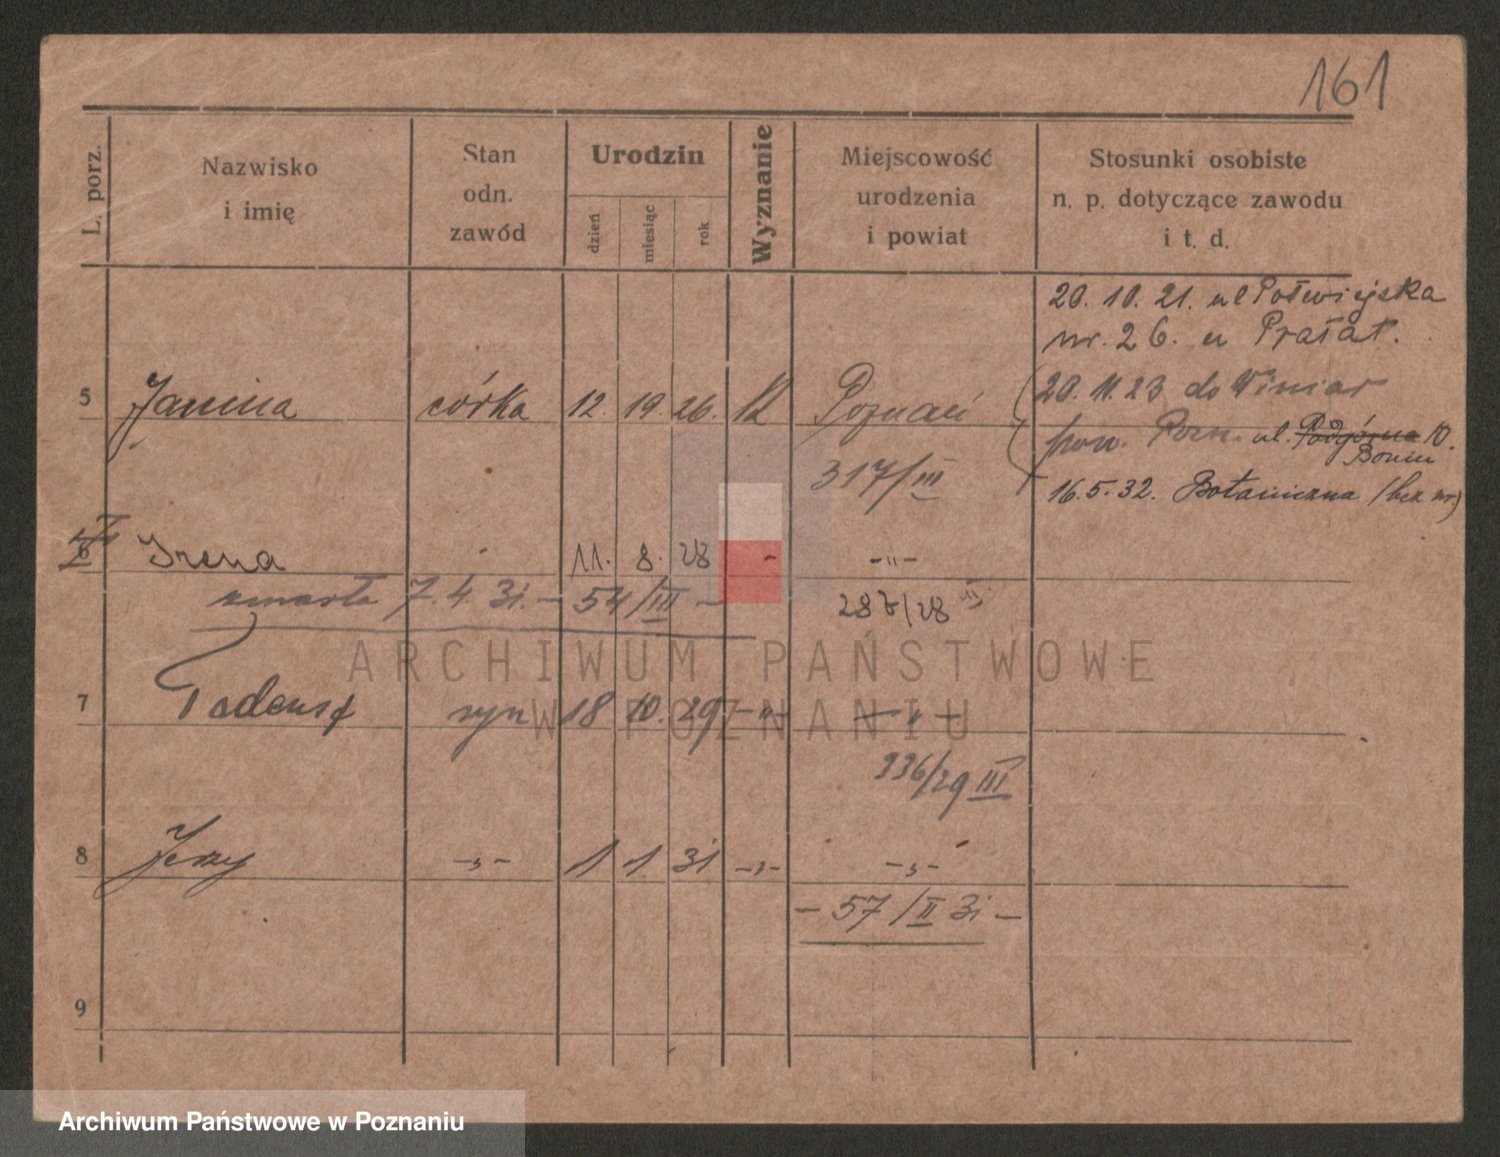 161
L. porz.
Nazwisko
i imię
Stan
odn.
zawód
Urodzin
dzień
miesiąc
rok
Wyznanie
Miejscowość
urodzenia
i powiat
Stosunki osobiste
n. p. dotyczące zawodu
i t. d.
20. 10. 21. ul Półwiejska
nr. 26. u Prałat.
5 Janina córka 12. 19 26. Poznań
20. 11. 23 do Winiar
pow. Pozn. ul. Podgórna 10.
Bonin
317/III
16. 5. 32. Botaniczna (bez nr)
6 Irena 11. 8. 28 - -„-
zmarła 7. 4. 31. - 54/III -
287/28
ARCHIWUM PAŃSTWOWE
W POZNANIU
7 Tadeusz syn 18 10. 29 -„- -„-
336/29 III
8 Jerzy -„- 1 1. 31 -„- -„-
- 57/II 31 -
9
Archiwum Państwowe w Poznaniu